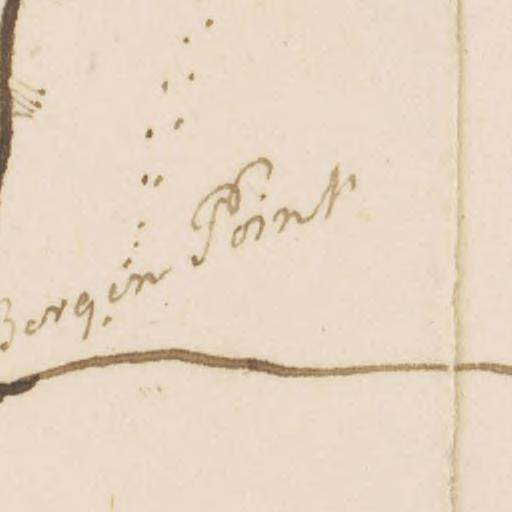 Bergin Point